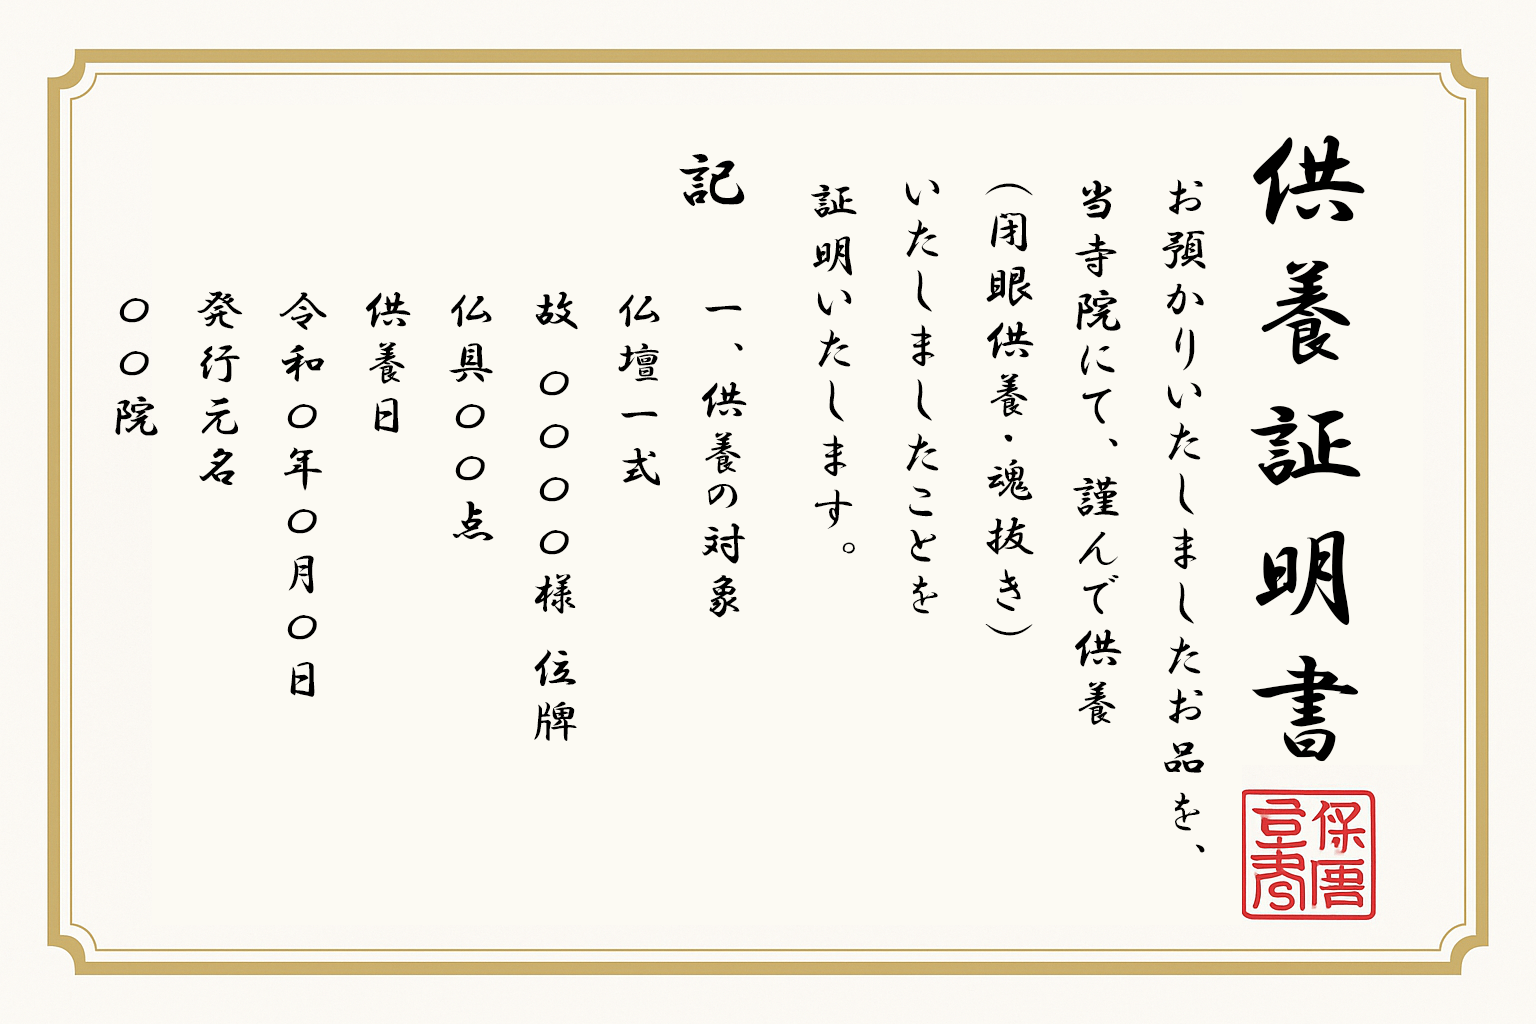 供養証明書
お預かりいたしましたお品を、
当寺院にて、謹んで供養
（閉眼供養・魂抜き）
いたしましたことを
証明いたします。
記
一、供養の対象
仏壇一式
故 〇〇〇〇様 位牌
仏具〇〇点
供養日
令和〇年〇月〇日
発行元名
〇〇院